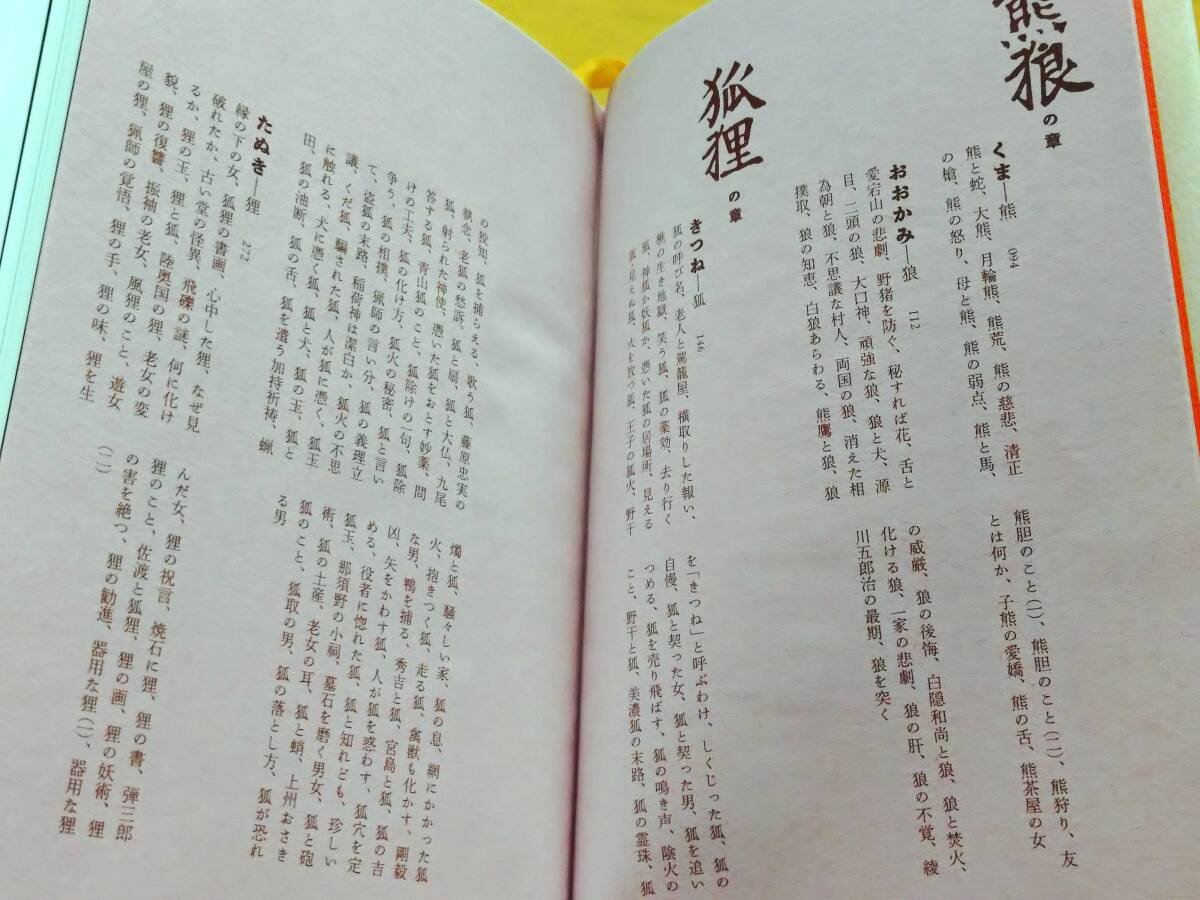 熊狼の章
くま―熊　094
熊と蛇、大熊、月輪熊、熊荒、熊の慈悲、清正
の槍、熊の怒り、母と熊、熊の弱点、熊と馬、
熊胆のこと(一)、熊胆のこと(二)、熊狩り、友
とは何か、子熊の愛嬌、熊の舌、熊茶屋の女
おおかみ―狼　112
愛宕山の悲劇、野猪を防ぐ、秘すれば花、舌と
目、二頭の狼、大口神、頑強な狼、狼と犬、源
為朝と狼、不思議な村人、両国の狼、消えた相
撲取、狼の知恵、白狼あらわる、熊鷹と狼、狼
の威厳、狼の後悔、白隠和尚と狼、狼と焚火、
化ける狼、一家の悲劇、狼の肝、狼の不覚、綾
川五郎治の最期、狼を突く
狐狸の章
きつね―狐　146
狐の呼び名、老人と駕籠屋、横取りした報い、
樵の生き地獄、笑う狐、狐の薬効、去り行く
狐、神狐か妖狐か、憑いた狐の居場所、見える
狐・見えぬ狐、火を放つ狐、王子の狐火、野干
を「きつね」と呼ぶわけ、しくじった狐、狐の
自慢、狐と契った女、狐と契った男、狐を追い
つめる、狐を売り飛ばす、狐の鳴き声、陰火の
こと、野干と狐、美濃狐の末路、狐の霊珠、狐
の狡知、狐を捕らえる、歌う狐、藤原忠実の
験念、老狐の愁訴、狐と扇、狐と大仏、九尾
狐、射られた神使、憑いた狐をおとす妙薬、問
答する狐、青山狐のこと、狐除けの一句、狐除
けの工夫、狐の化け方、狐火の秘密、狐と言い
争う、狐の相撲、猟師の言い分、狐の義理立
て、盗狐の末路、稲荷神は潔白か、狐火の不思
議、くだ狐、騙された狐、人が狐に憑く、狐玉
に触れる、犬に憑く狐、狐と犬、狐の玉、狐と
田、狐の油断、狐の舌、狐を遣う加持祈祷、蝋
燭と狐、騒々しい家、狐の息、網にかかった狐
火、抱きつく狐、走る狐、禽獣も化かす、剛毅
な男、鴨を捕る、秀吉と狐、宮島と狐、狐の吉
凶、矢をかわす狐、人が狐を惑わす、狐穴を定
める、役者に惚れた狐、狐と知れども、珍しい
狐玉、那須野の小祠、墓石を磨く男女、狐と砲
術、狐の土産、老女の耳、狐と蛸、上州おさき
狐のこと、狐取の男、狐の落とし方、狐が恐れ
る男
たぬき―狸　272
縁の下の女、狐狸の書画、心中した狸、なぜ見
破れたか、古い堂の怪異、飛礫の謎、何に化け
るか、狸の玉、狸と狐、陸奥国の狸、老女の変
貌、狸の復讐、振袖の老女、風狸のこと、遊女
屋の狸、猟師の覚悟、狸の手、狸の味、狸を生
んだ女、狸の祝言、焼石に狸、狸の書、弾三郎
狸のこと、佐渡と狐狸、狸の画、狸の妖術、狸
の害を絶つ、狸の勧進、器用な狸(一)、器用な狸
(二)